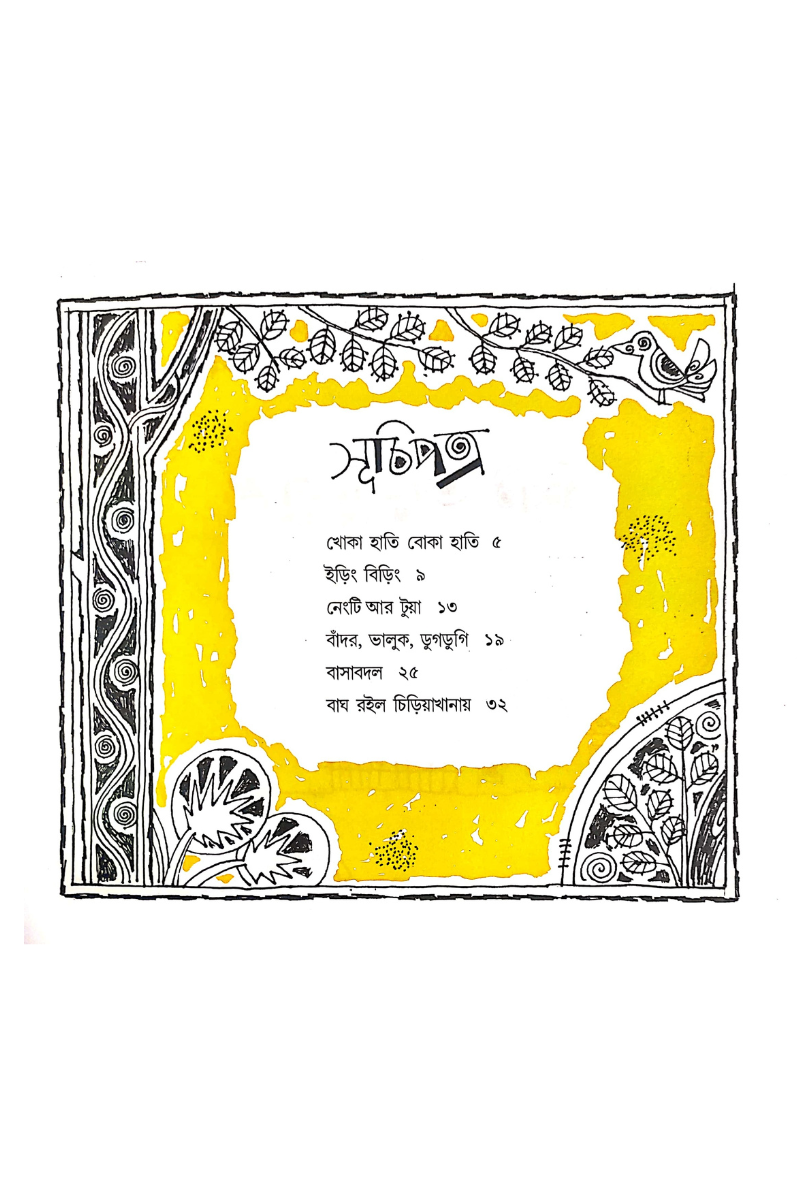 সূচিপত্র
খোকা হাতি বোকা হাতি ৫
ইড়িং বিড়িং ৯
নেংটি আর টুয়া ১৩
বাঁদর, ভালুক, ডুগডুগি ১৯
বাসাবদল ২৫
বাঘ রইল চিড়িয়াখানায় ৩২